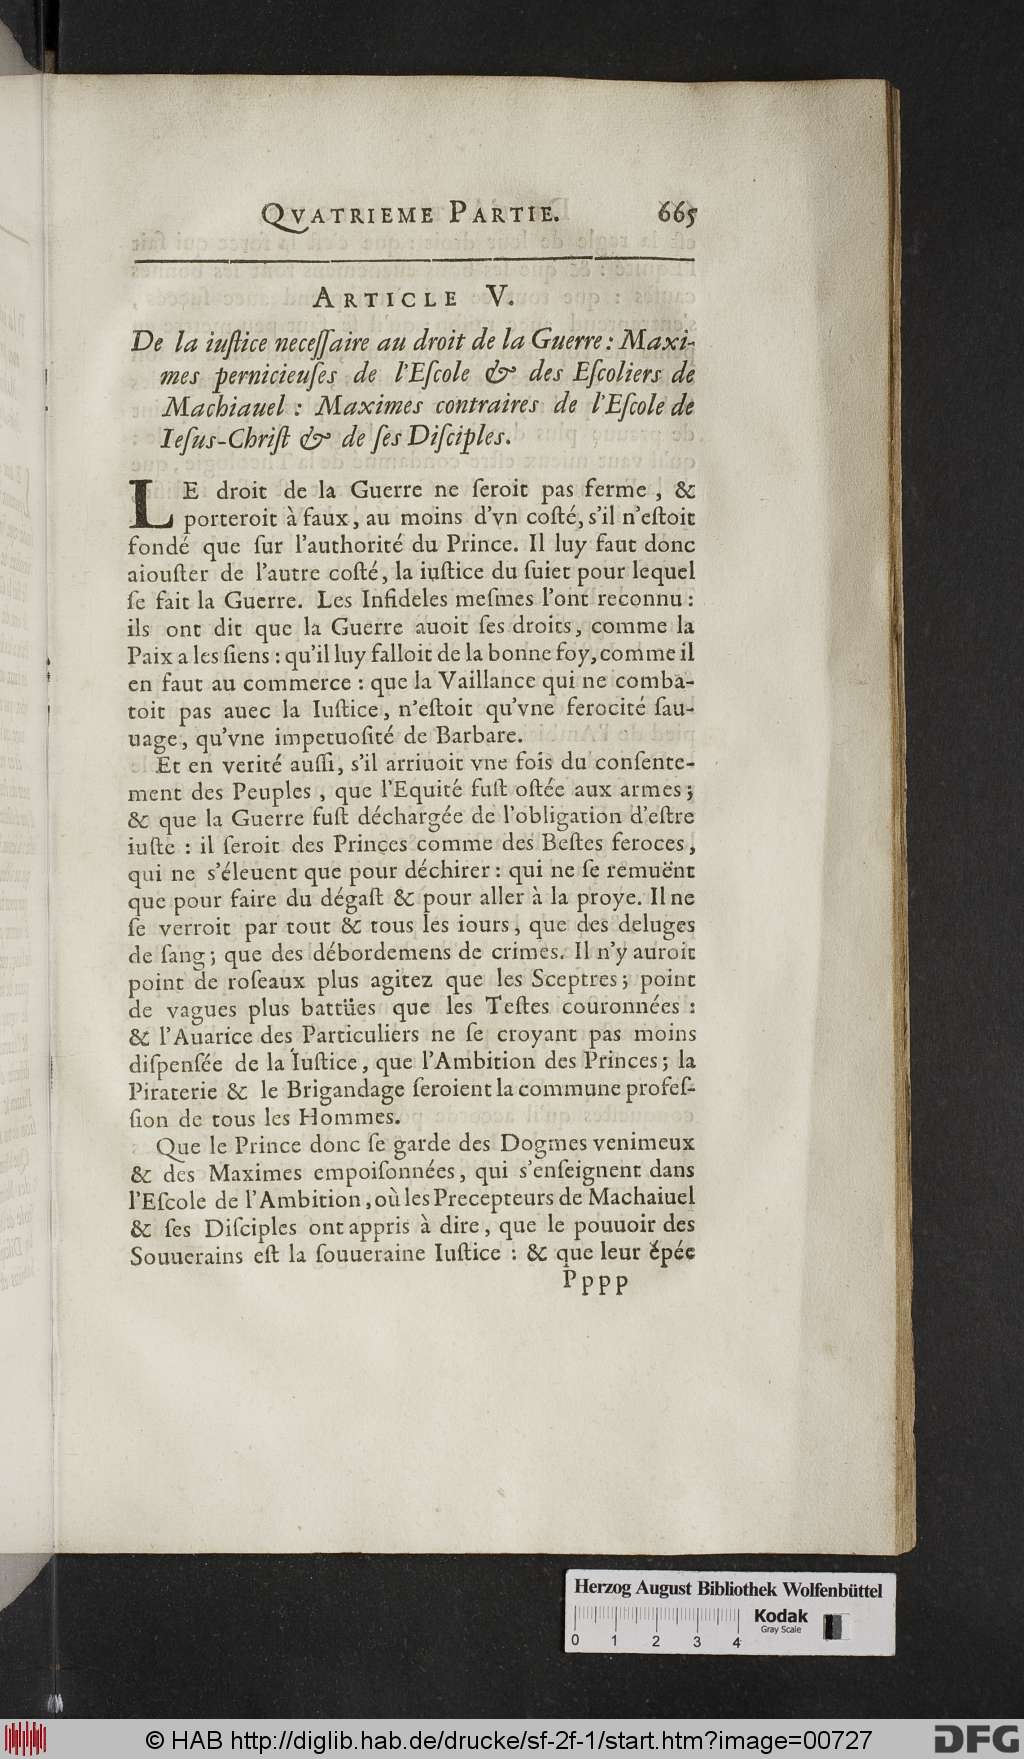 QVATRIEME PARTIE. 665
ARTICLE V.
De la iuſtice neceſſaire au droit de la Guerre : Maxi-
mes pernicieuſes de l'Eſcole & des Eſcoliers de
Machiauel : Maximes contraires de l'Eſcole de
Ieſus-Chriſt & de ſes Diſciples.
LE droit de la Guerre ne ſeroit pas ferme , &
porteroit à faux, au moins d'vn coſté, s'il n'eſtoit
fondé que ſur l'authorité du Prince. Il luy faut donc
aiouſter de l'autre coſté, la iuſtice du ſuiet pour lequel
ſe fait la Guerre. Les Infideles meſmes l'ont reconnu :
ils ont dit que la Guerre auoit ſes droits, comme la
Paix a les ſiens : qu'il luy falloit de la bonne foy, comme il
en faut au commerce : que la Vaillance qui ne comba-
toit pas auec la Iuſtice, n'eſtoit qu'vne ferocité ſau-
uage, qu'vne impetuoſité de Barbare.
Et en verité auſſi, s'il arriuoit vne fois du conſente-
ment des Peuples , que l'Equité fuſt oſtée aux armes ;
& que la Guerre fuſt déchargée de l'obligation d'eſtre
iuſte : il ſeroit des Princes comme des Beſtes feroces,
qui ne s'éleuent que pour déchirer : qui ne ſe remuënt
que pour faire du dégaſt & pour aller à la proye. Il ne
ſe verroit par tout & tous les iours, que des deluges
de ſang ; que des débordemens de crimes. Il n'y auroit
point de roſeaux plus agitez que les Sceptres ; point
de vagues plus battües que les Teſtes couronnées :
& l'Auarice des Particuliers ne ſe croyant pas moins
diſpenſée de la Iuſtice, que l'Ambition des Princes ; la
Piraterie & le Brigandage ſeroient la commune profeſ-
ſion de tous les Hommes.
Que le Prince donc ſe garde des Dogmes venimeux
& des Maximes empoiſonnées, qui s'enſeignent dans
l'Eſcole de l'Ambition, où les Precepteurs de Machaiuel
& ſes Diſciples ont appris à dire, que le pouuoir des
Souuerains eſt la ſouueraine Iuſtice : & que leur épée
Pppp
Herzog August Bibliothek Wolfenbüttel
Kodak
Gray Scale
0 1 2 3 4
© HAB http://diglib.hab.de/drucke/sf-2f-1/start.htm?image=00727
DFG